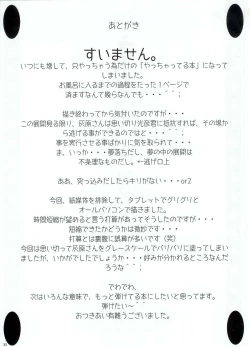 あとがき
すいません。
いつにも増して、只やっちゃう為だけの『やっちゃってる本』になって
しまいました。
お風呂に入るまでの過程をたった1ページで
済ますなんて幾らなんでも・・・^^；
描き終わってから気付いたのですが・・・
この展開見る限り、灰原さんは思い切り光彦君に抵抗すれば、その場か
ら逃げる事ができるのではと・・・^^；
事を実行させる事ばかりに気を取られてて・・・
ま、いっか・・・夢落ちだし、夢の中の展開は
不条理なものだし。←逃げ口上
ああ、突っ込みだしたらキリがない・・・or2
今回、紙媒体を排除して、タブレットでグリグリと
オールパソコンで描きました。
時間短縮が望めると言う打算があってそうしたのですが・・・
短縮できたかどうかは微妙です・・・
打算とは裏腹に誤算が多いです（笑）
今回は思い切って灰原さんをグレースケールでバリバリに塗ってしまい
ましたが、いかがでしたでしょうか・・・好みが分かれるところなんだ
ろうな^^；
でわでわ、
次はいろんな意味で、もっと弾けてる本にしたいと思ってます。
弾けたい～^^
おつきあい有難うございました。